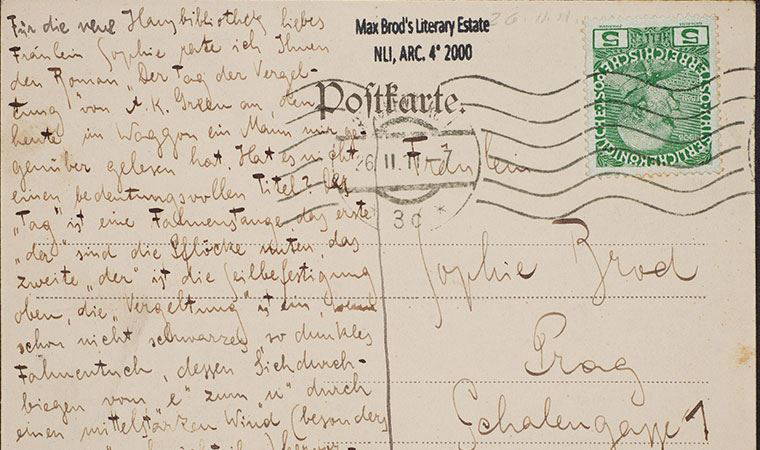 Für die neue Hausbibliothek liebes
Fräulein Sophie rate ich Ihnen
den Roman „Der Tag der Vergel-
tung" von A. K. Green an, den
heute im Waggon ein Mann mir ge-
genüber gelesen hat. Hat es nicht
einen bedeutungsvollen Titel? Der
„Tag" ist eine Fahnenstange, das erste
„der" sind die Pflöcke unten, das
zweite „der" ist die Seilbefestigung
oben, die „Vergeltung" ist ein, wenn
schon nicht schwarzes so dunkles
Fahnentuch, dessen Sichdurch-
biegen vom „e" zum „u" durch
einen mittelstarken Wind (besonders
Max Brod's Literary Estate
NLI, ARC. 4° 2000
Postkarte.
26 II 11
3c *
5 HELLER 5
Fräulein
Sophie Brod
Prag
Schalengasse 1